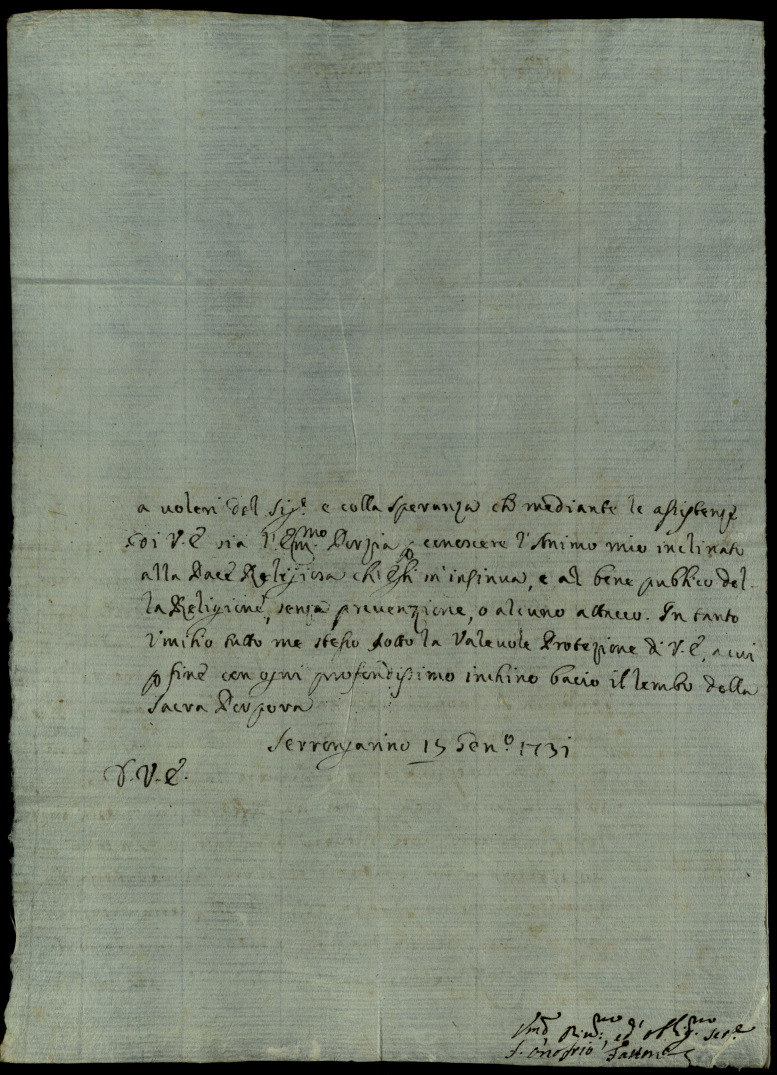 a voleri del Sig.e e colla speranza che mediante le assistenze
di V. E. sia l'Em.mo Porzia p conoscere l'Animo mio inclinato
alla Pace Religiosa ch'egli m'insinua, e al bene publico del-
la Religione, senza prevenzione, o alcuno attacco. In tanto
Umilio tutto me stesso sotto la Valevole Protezione di V. E., a cui
p fine con ogni profondissimo inchino bacio il lembo della
Sacra Porpora
Serronzarino 15 Gen.o 1731
D. V. E.
Um.o Div.mo, ed obblig.mo Ser.e
F. Onofrio